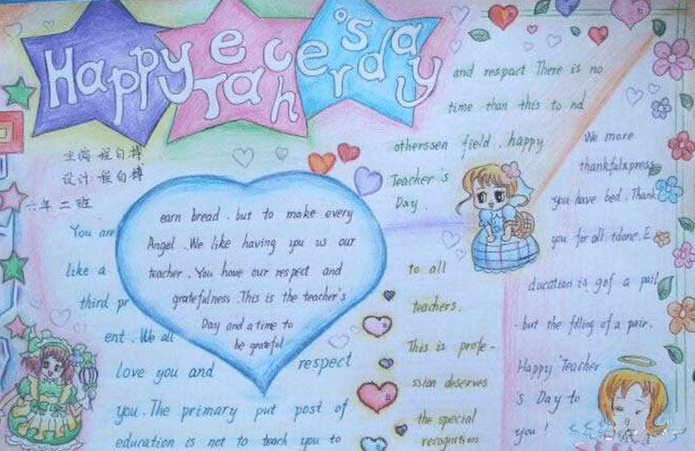 Happy Teacher's day
主编:程自樟
设计:程自樟
六年二班
You are
like a
third pr
ent. We all
love you and respect
you. The primary put post of
education is not to teach you to
earn bread. but to make every
Angel. We like having you us our
teacher. You have our respect and
gratefulness. This is the teacher's
Day and a time to
be grateful
and respact There is no
time than this to nd
otherssen field. happy
Teacher's
Day.
to all
teachers.
This is profe-
ssion deserves
the special
recognition
We more
thankfulxpress
you have bed. Thank
you for all tdone. E
ducation is gof a pail
. but the filling of a pair.
Happy Teacher
's Day to
you!